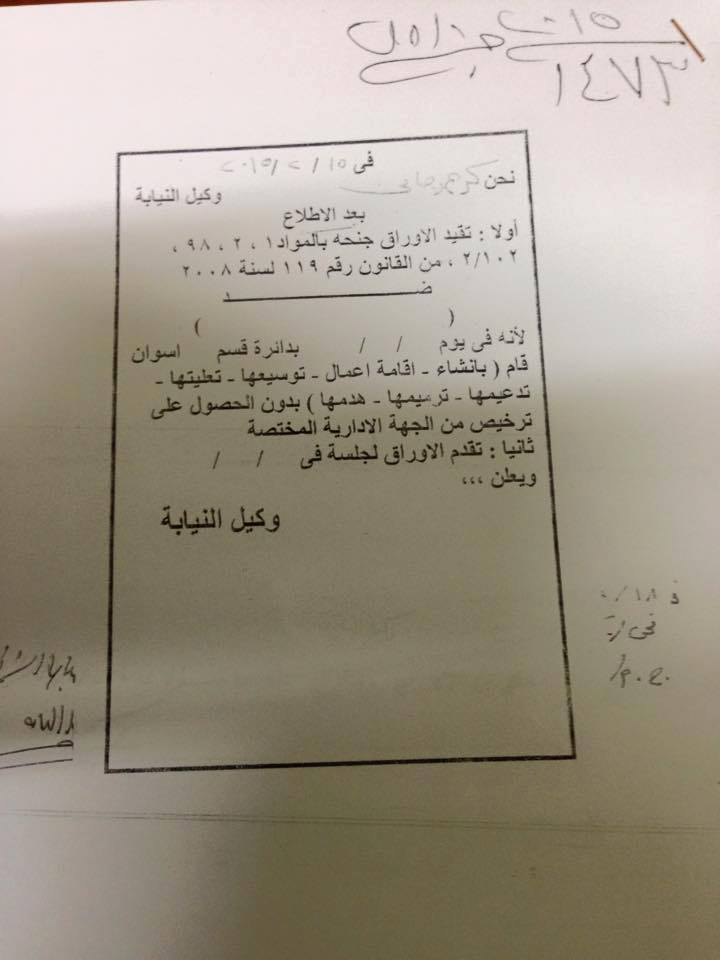 ٢٠١٥
١٤٧٣
فى ١٥ / ٢ / ٢٠١٥
نحن
وكيل النيابة
بعد الاطلاع
أولا : تقيد الاوراق جنحه بالمواد ١ ، ٢ ، ٩٨ ،
٢/١٠٢ ، من القانون رقم ١١٩ لسنة ٢٠٠٨
ضـــــــــد
( )
لأنه فى يوم / / بدائرة قسم اسوان
قام ( بانشاء - اقامة اعمال - توسيعها - تعليتها -
تدعيمها - ترميمها - هدمها ) بدون الحصول على
ترخيص من الجهة الادارية المختصة
ثانيا : تقدم الاوراق لجلسة فى / /
ويعلن ،،،
وكيل النيابة